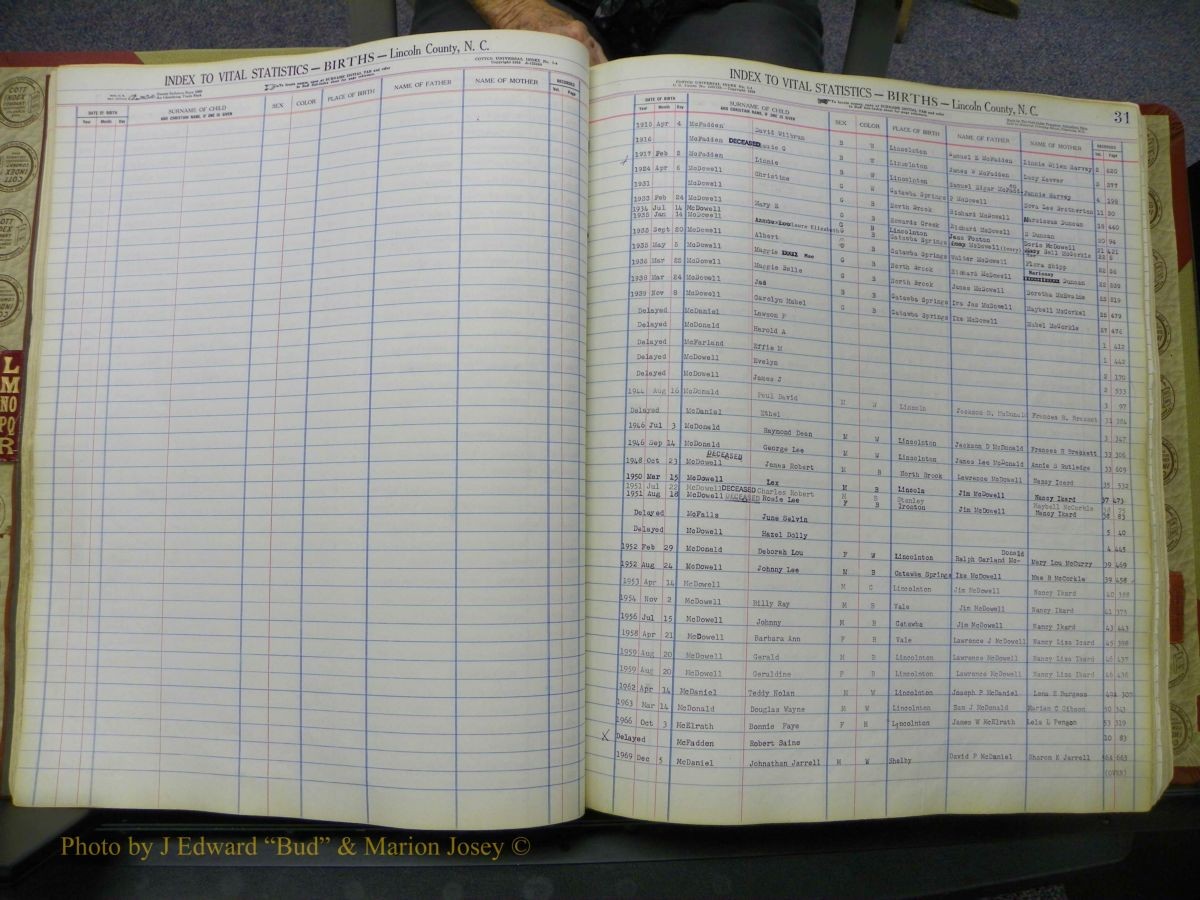 INDEX TO VITAL STATISTICS — BIRTHS — Lincoln County, N. C.
DATE OF BIRTH SURNAME OF CHILD SEX COLOR PLACE OF BIRTH NAME OF FATHER NAME OF MOTHER RECORDED
Year Month Day AND CHRISTIAN NAME, IF ONE IS GIVEN Vol. Page
INDEX TO VITAL STATISTICS — BIRTHS — Lincoln County, N. C. 31
DATE OF BIRTH SURNAME OF CHILD SEX COLOR PLACE OF BIRTH NAME OF FATHER NAME OF MOTHER RECORDED
Year Month Day AND CHRISTIAN NAME, IF ONE IS GIVEN Vol. Page
1910 Apr 4 McFadden David Wilbrun B W Lincolnton Samuel E McFadden Linnie Ellen Harvey 2 620
1916 McFadden DECEASED G B W Lincolnton James W McFadden Lucy Keever 2 377
1917 Feb 2 McFadden Linnie G W Lincolnton Samuel Edgar McFadden Fannie Harvey 4 198
1924 Apr 6 McDowell Christine G B Catawba Springs P McDowell Nova Lee Brotherton 11 30
1931 McDowell Mary E G B North Brook Richard McDowell Narcissus Duncan 18 440
1933 Feb 24 McDowell G B Howards Creek Richard McDowell S Duncan 20 94
1934 Jul 14 McDowell Laura Elizabeth G B Lincolnton Jane Poston Doris McDowell 21 421
1935 Jan 14 McDowell Albert B Catawba Springs McDowell Bell McCorkle 22 2
1935 Sept 20 McDowell Maggie Mae G B Catawba Springs Walter McDowell Flora Shipp 22 56
1935 May 5 McDowell Maggie Belle G B North Brook Richard McDowell Duncan 22 539
1936 Mar 22 McDowell Jas B B North Brook James McDowell Doretha McEwains 23 519
1938 Mar 24 McDowell Carolyn Mabel G B Catawba Springs Ira Jas McDowell Maybell McCorkel 25 479
1939 Nov 8 McDowell Lawson F Catawba Springs Ike McDowell Mabel McCorkle 27 476
Delayed McDaniel Harold A 1 412
Delayed McDonald Effie M 1 442
Delayed McFarland Evelyn 2 170
Delayed McDowell James J 2 533
Delayed McDowell 3 97
1944 Aug 16 McDonald Paul David M W Lincoln Jackson D. McDonald Frances H. Brackett 31 384
Delayed McDaniel Ethel 3 347
1946 Jul 3 McDonald Raymond Dean M W Lincolnton Jackson D McDonald Frances H Brackett 33 306
1946 Sep 14 McDonald George Lee M W Lincolnton James Lee McDonald Annie S Rutledge 33 609
DECEASED
1948 Oct 23 McDowell James Robert M B North Brook Lawrence McDowell Nancy Icard 35 532
1950 Mar 15 McDowell Lex M B Lincoln Jim McDowell Nancy Ikard 37 473
1951 Jul 22 McDowell DECEASED Charles Robert M B Stanley Maybell McCorkle 38 75
1951 Aug 18 McDowell DECEASED Rosie Lee F B Ironton Jim McDowell Nancy Ikard 38 83
Delayed McFalls June Selvin 5 40
Delayed McDowell Hazel Dolly 4 445
1952 Feb 29 McDonald Deborah Lou F W Lincolnton Ralph Garland Mc-Donald Mary Lou McCurry 39 469
1952 Aug 24 McDowell Johnny Lee M B Catawba Springs Ike McDowell Mae B McCorkle 39 458
1953 Apr 14 McDowell M C Lincolnton Jim McDowell Nancy Ikard 40 388
1954 Nov 2 McDowell Billy Ray M B Vale Jim McDowell Nancy Ikard 41 375
1956 Jul 15 McDowell Johnny M B Catawba Jim McDowell Nancy Ikard 43 443
1958 Apr 21 McDowell Barbara Ann F B Vale Lawrence J McDowell Nancy Liza Icard 45 388
1959 Aug 20 McDowell Gerald M B Lincolnton Lawrence McDowell Nancy Liza Ikard 46 437
1959 Aug 20 McDowell Geraldine F B Lincolnton Lawrence McDowell Nancy Liza Ikard 46 436
1962 Apr 14 McDaniel Teddy Nolan M W Lincolnton Joseph P McDaniel Lena E Burgess 49A 307
1963 Mar 14 McDonald Douglas Wayne M W Lincolnton San J McDonald Marian C Gibson 50 343
1966 Oct 3 McElrath Bonnie Faye F W Lincolnton James W McElrath Lela L Pengon 53 319
X Delayed McFadden Robert Saine 10 83
1969 Dec 5 McDaniel Johnathan Jarrell M W Shelby David P McDaniel Sharon K Jarrell 56A 663
(OVER)
L
M
NO
PQ
R
Photo by J Edward “Bud” & Marion Josey ©